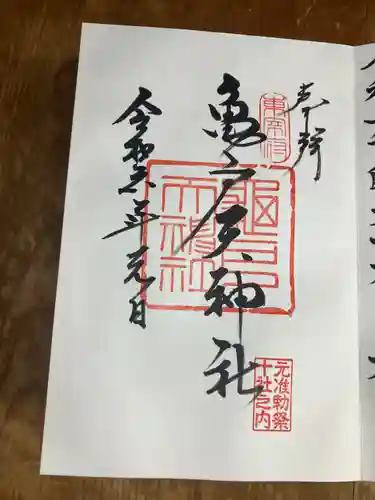 奉拝
東宰府
亀戸天神社
龜戸
天神社
元准勅祭
十社之内
令和六年元日